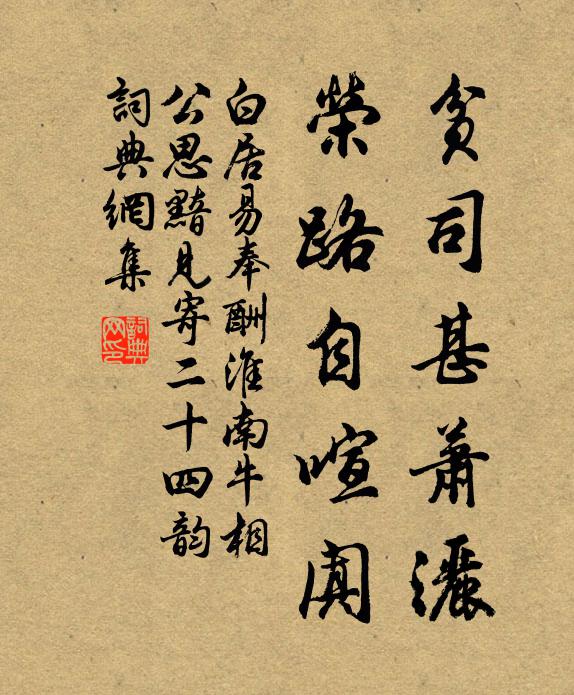 貧司甚蕭灑
榮路自喧闐
白居易奉酬淮南牛相
公思黯見寄二十四韵
詞典網集
詞典網印